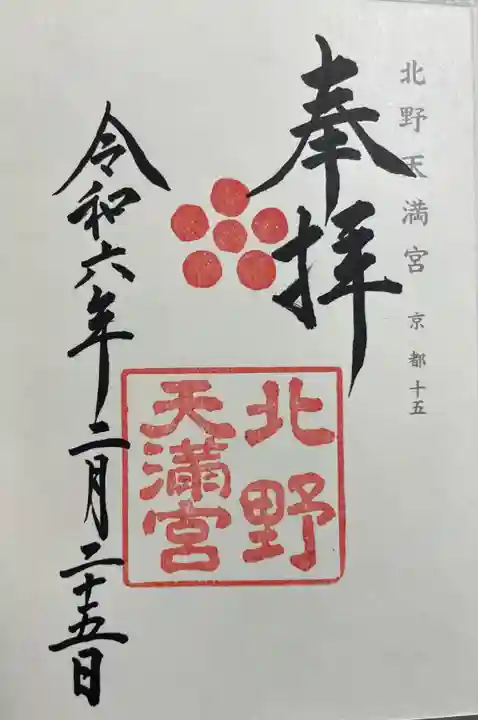 北野天満宮 京都十五
奉拝
北野
天満宮
令和六年二月二十五日